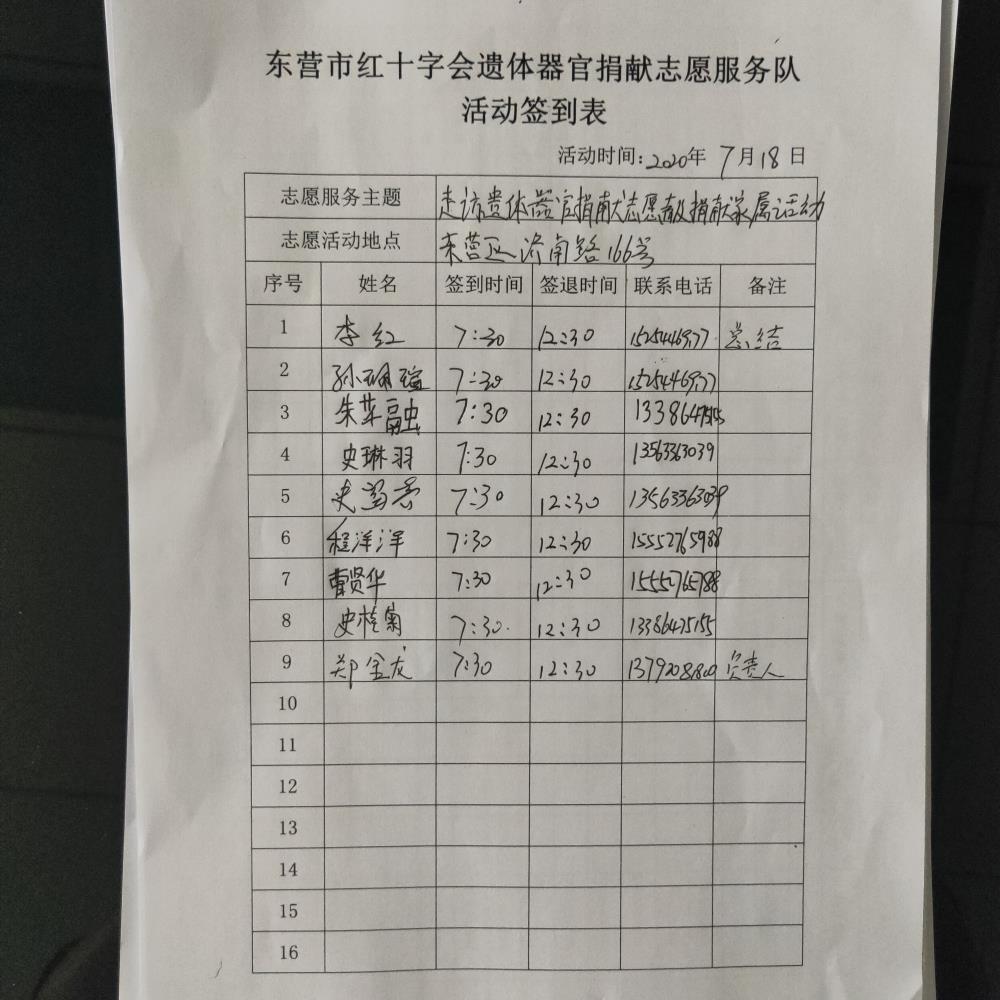 东营市红十字会遗体器官捐献志愿服务队
活动签到表
活动时间:2020年 7月18日
志愿服务主题 走访遗体器官捐献志愿者及捐献家属活动
志愿活动地点 东营区济南路166号
序号 姓名 签到时间 签退时间 联系电话 备注
1 李红 7:30 12:30 总结
2 孙珮瑄 7:30 12:30
3 朱苹融 7:30 12:30
4 史琳羽 7:30 12:30 13563363039
5 史 7:30 12:30 13563363039
6 程洋洋 7:30 12:30
7 曹贤华 7:30 12:30
8 史桂菊 7:30 12:30 13386475155
9 郑金龙 7:30 12:30 负责人
10
11
12
13
14
15
16